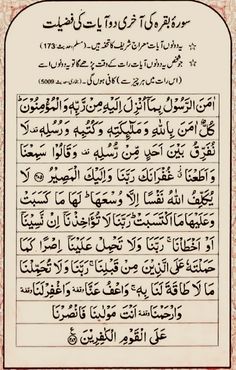 سورۂ بقرہ کی آخری دو آیات کی فضیلت
یہ دونوں آیات معراج شریف کا تحفہ ہیں۔ (مسلم، حدیث 173)
جو شخص یہ دونوں آیات رات کے وقت پڑھے گا تو یہ دونوں اسے
(اس رات میں ہر چیز سے) کافی ہوں گی۔ (بخاری، حدیث 5009)
اٰمَنَ الرَّسُوْلُ بِمَاۤ اُنْزِلَ اِلَيْهِ مِنْ رَّبِّهٖ وَ الْمُؤْمِنُوْنَ ؕ
كُلٌّ اٰمَنَ بِاللّٰهِ وَ مَلٰٓئِكَتِهٖ وَ كُتُبِهٖ وَ رُسُلِهٖ لَا
نُفَرِّقُ بَيْنَ اَحَدٍ مِّنْ رُّسُلِهٖ وَ قَالُوْا سَمِعْنَا
وَ اَطَعْنَا غُفْرَانَكَ رَبَّنَا وَ اِلَيْكَ الْمَصِيْرُ لَا
يُكَلِّفُ اللّٰهُ نَفْسًا اِلَّا وُسْعَهَا ؕ لَهَا مَا كَسَبَتْ
وَ عَلَيْهَا مَا اكْتَسَبَتْ ؕ رَبَّنَا لَا تُؤَاخِذْنَاۤ اِنْ نَّسِيْنَاۤ
اَوْ اَخْطَاْنَا ۚ رَبَّنَا وَ لَا تَحْمِلْ عَلَيْنَاۤ اِصْرًا كَمَا
حَمَلْتَهٗ عَلَى الَّذِيْنَ مِنْ قَبْلِنَا ۚ رَبَّنَا وَ لَا تُحَمِّلْنَا
مَا لَا طَاقَةَ لَنَا بِهٖ ۚ وَ اعْفُ عَنَّا وقفة وَ اغْفِرْ لَنَا وقفة
وَ ارْحَمْنَا وقفة اَنْتَ مَوْلٰىنَا فَانْصُرْنَا
عَلَى الْقَوْمِ الْكٰفِرِيْنَ